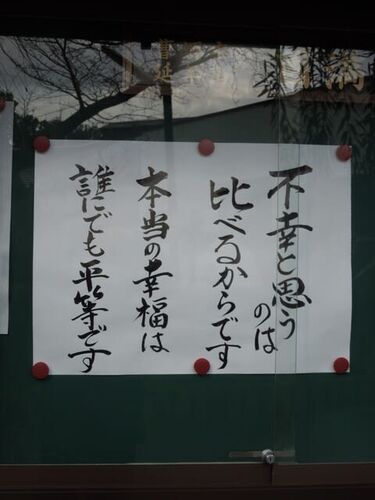 不幸と思う
のは
比べるからです
本当の幸福は
誰にでも平等です